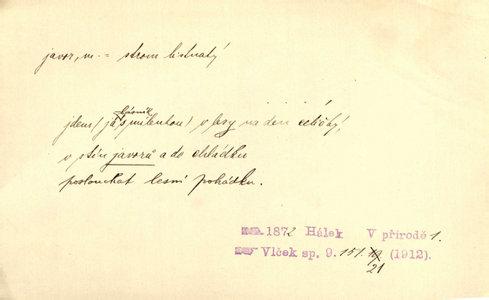 javor, m. = strom listnatý
básník
jdem (já s milenkou) v lesy na den celičký,
v stín javorů a do chládku
poslouchat lesní pohádku.
1872 Hálek V přírodě 1.
Vlček sp. 9. 151. 19 (1912).
21